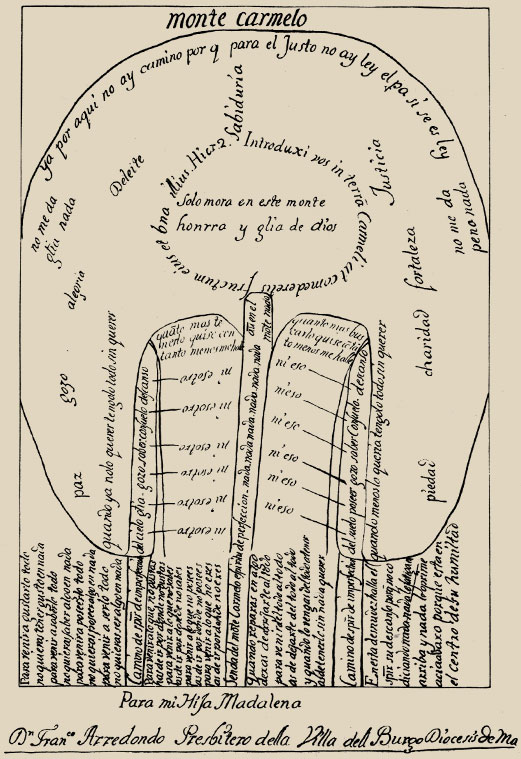 monte carmelo
ya por aqui no ay camino por q para el Justo no ay ley el pa si se es ley
no me da
glia nada
Deleite
alegria
gozo
paz
Sabiduria
Justicia
fortaleza
charidad
piedad
no me da
pena nada
Introduxi vos in terrā Carmeli ut comederetis fructum eius et bna illius Hier 2.
Solo mora en este monte
honrra y glia de dios
quāto mas te
nerlo quise con
tanto menos me hallé
quanto mas bus
carlo quise cō tā
to menos me hallé
ni esotro
ni esotro
ni esotro
ni esotro
ni esotro
ni esotro
ni eso
ni eso
ni eso
ni eso
ni eso
quando ya no lo quiero tengolo todo sin querer
quando menos lo queria tengolo todo sin querer
Camino de spū de imperfeccion del cielo glia gozo saber consuelo descanso
Senda del mōte Carmelo espiritu de perfeccion nada nada nada nada nada nada
Camino de spū de imperfeccion del suelo poseer gozo saber consuelo descanso
Para venir a gustarlo todo
no quieras tener gusto en nada
para venir a saberlo todo
no quieras saber algo en nada
para venir a poseerlo todo
no quieras poseer algo en nada
para venir a serlo todo
no quieras ser algo en nada
Para venir a lo que no gustas
has de ir por donde no gustas
para venir a lo que no sabes
has de ir por donde no sabes
para venir a lo que no posees
has de ir por donde no posees
para venir a lo que no eres
has de ir por donde no eres
Quando reparas en algo
dexas de arrojarte al todo
para venir del todo al todo
has de dejarte del todo en todo
y quando lo vengas del todo a tener
has de tenerlo sin nada querer
En esta desnudez halla el
spū su descanso porq no co
diciando nada nada le fatiga
arriba y nada le oprime
acia baxo porque esta en
el centro de su humildad
Para mi Hija Madalena
Dn Franco Arredondo Presbitero della Villa dell Burgo Diocesis de Ma